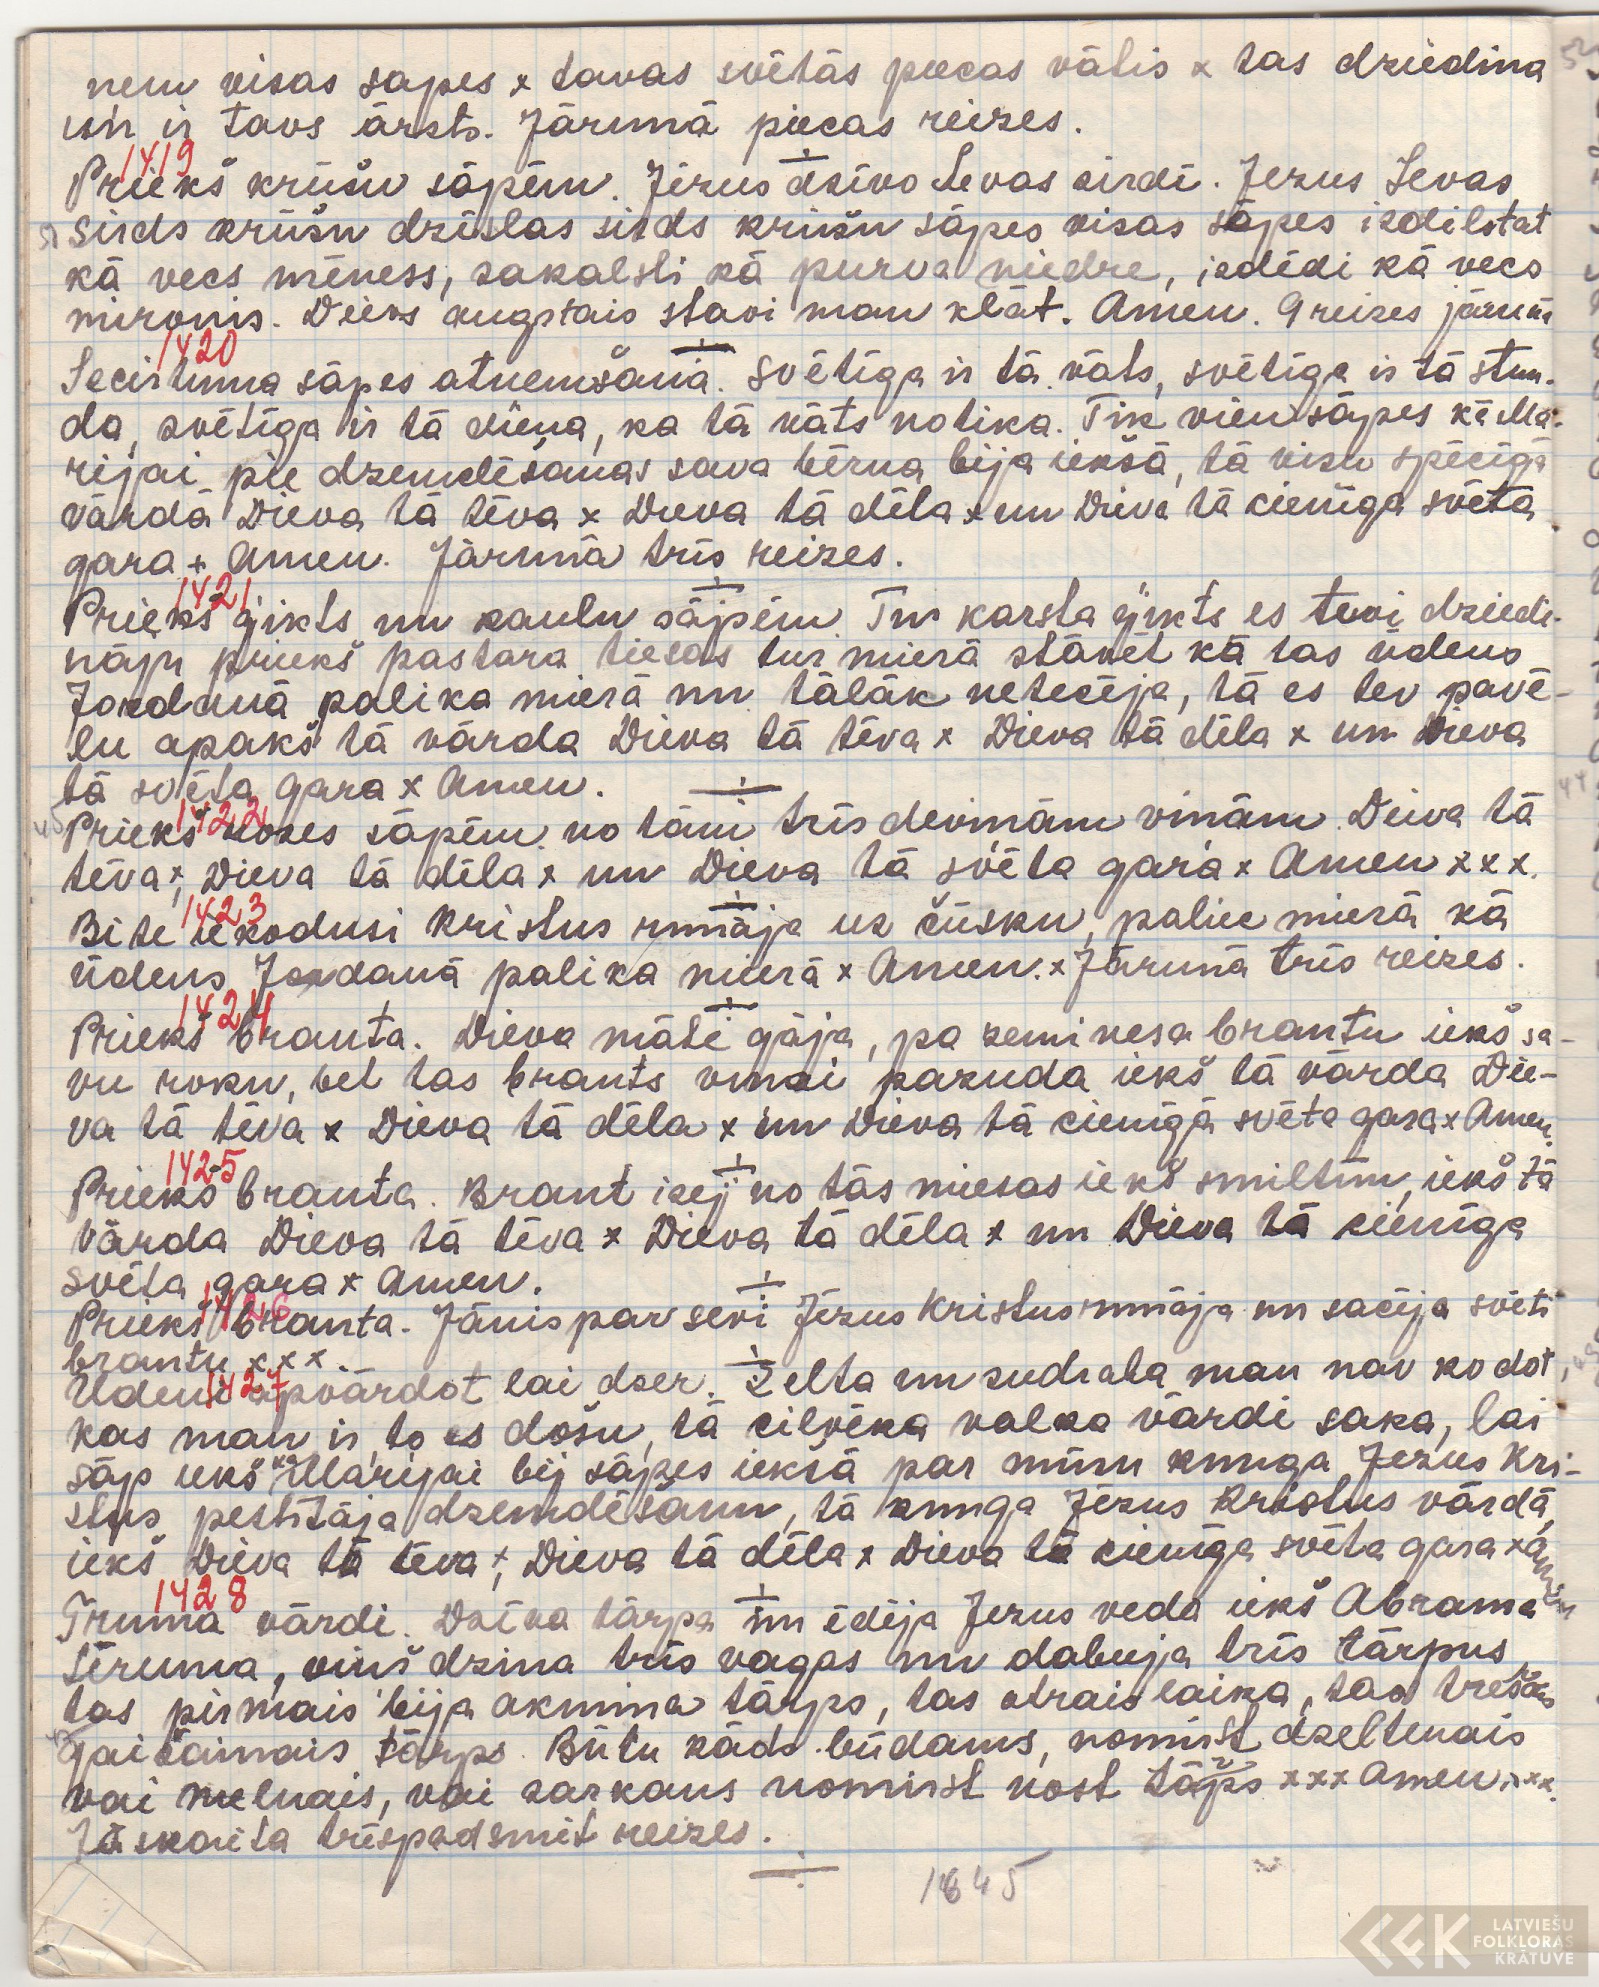 nem visas sāpes x tavas svētās piecas vātis x tas dziedina
un ir tavs ārsts. Jārunā piecas reizes.
1419
Prieks krūšu sāpēm. Jēzus dzīvo Ievas sirdī. Jezus Ievas
sirds krūšu dzīslas sirds krūšu sāpes visas sāpes izdilstat
kā vecs mēness, sakalsti kā purva niedre, izdēdi kā vecs
mironis. Dievs augstais stāvi man klāt. Amen. 9 reizes jārunā
1420
Iecirtuma sāpes atņemšana. Svētīga ir tā vāts, svētīga ir tā stun-
da, svētīga ir tā diena, ka tā vāts notika. Tik vien sāpes kā Ma-
rijai pie dzemdēšanas sava bērna bija iekšā, tā visu spēcīgā
vārdā Dieva tā tēva x Dieva tā dēla x un Dieva tā cienīga svēta
gara + Amen. Jārunā trīs reizes.
1421
Prieks ģikts un kaulu sāpēm. Tu karsta ģikts es tevi dziedi-
nāju priekš pastara tiesas tur mierā stāvēt kā tas ūdens
Jordanā palika mierā un tālāk netecēja, tā es tev pavē-
lu apakš tā vārda Dieva tā tēva x Dieva tā dēla x un Dieva
tā svēta gara x Amen.
1422
Prieks roses sāpēm no tām trīs deviņām viņām. Dieva tā
tēva x, Dieva tā dēla x un Dieva tā svēta gara x Amen x x x.
1423
Bite iekodusi Kristus runāja uz čūsku, paliec mierā kā
ūdens Jordanā palika mierā x Amen. x Jārunā trīs reizes.
1424
Prieks branta. Dieva māte gāja, pa zemi nesa brantu iekš sa-
vu roku, bet tas brants viņai pazuda iekš tā vārda Die-
va tā tēva x Dieva tā dēla x un Dieva tā cienīgā svēta gara x Amen.
1425
Prieks branta. Brant izej no tās miesas iekš smiltīm, iekš tā
vārda Dieva tā tēva x Dieva tā dēla x un Dieva tā cienīga
svēta gara x Amen.
1426
Prieks branta. Jānis par sevi Jēzus Kristus runāja un sacīja svēti
brantu x x x.
1427
Ūdeni apvārdot lai dzer. Zelta un sudraba man nav ko dot,
kas man ir to es došu, tā cilvēka valka vārdi saka, lai
sāp iekš kā Marijai bij sāpes iekšā par mūsu kunga Jezus Kri-
stus pestītāja dzemdēšanu, tā kunga Jēzus Kristus vārdā,
iekš Dieva tā tēva x, Dieva tā dēla x Dieva tā cienīga svēta gara x Amen
1428
Truma vārdi. Dzīva tārpa un ēdēja Jezus veda iekš Abrama
tīruma, viņš dzina trīs vagas un dabuja trīs tārpus,
tas pirmais bija akmiņa tārps, tas otrais laika, tas trešais
gaisainais tārps. Būtu kāds būdams, nomirst dzeltenais
vai melnais, vai sarkans nomirst nost tārps x x x Amen x x x.
Jāskaita trīspadsmit reizes.
1845
LATVIEŠU
FOLKLORAS
KRĀTUVE